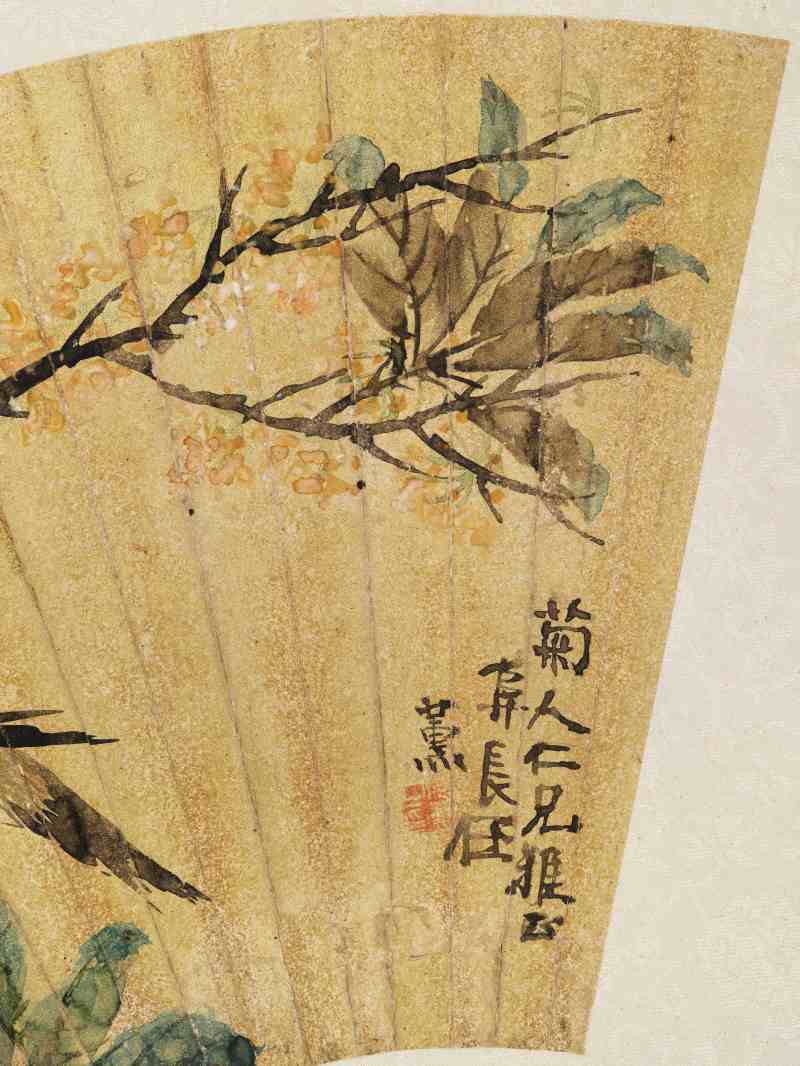 菊人仁兄雅正
阜長任
薰